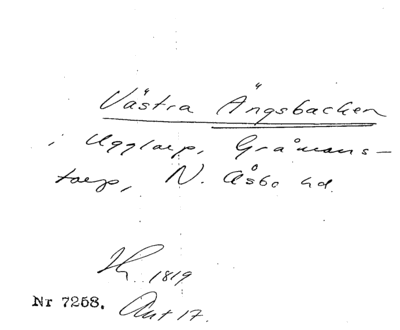 Västra Ängsbacken
i Ugglarp, Gråmans-
torp, N. Åsbo hd.
1819
Nr 7258. Akt 17.